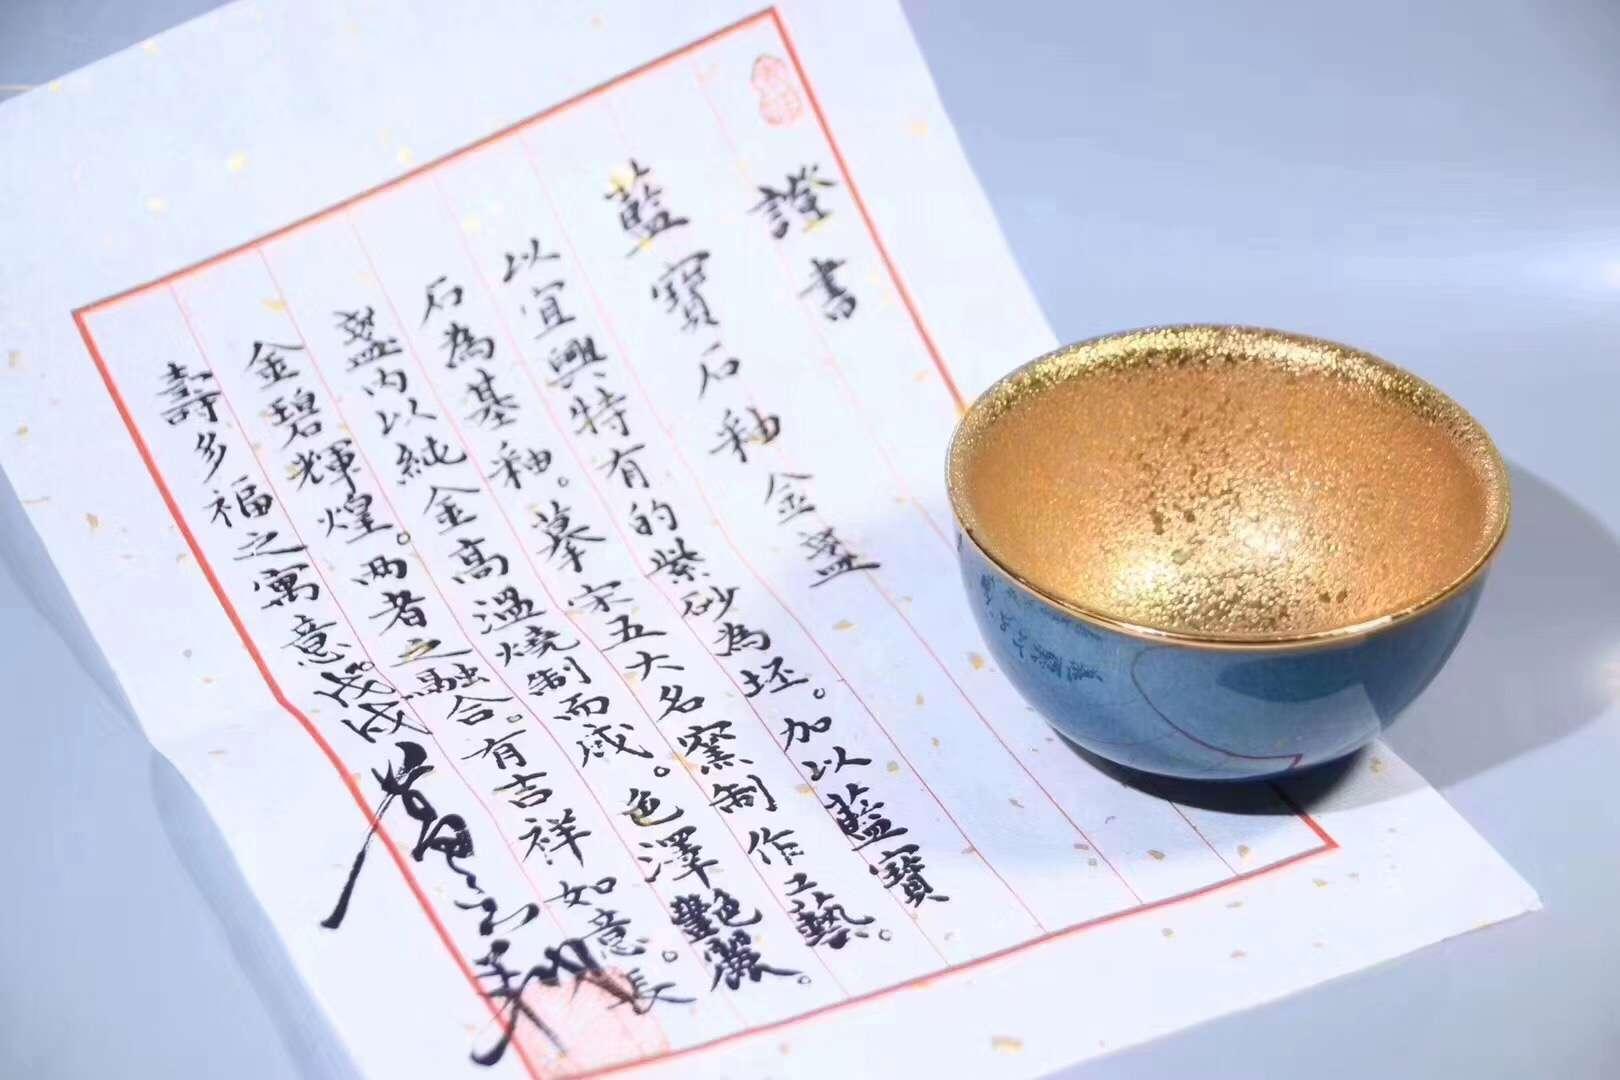 證書
藍寶石釉金盞
以宜興特有的紫砂為坯。加以藍寶
石為基釉。摹宋五大名窯制作工藝。
盞内以純金高溫燒制而成。色澤艷麗。
金碧輝煌。兩者之融合。有吉祥如意長
壽多福之寓意。戊戌